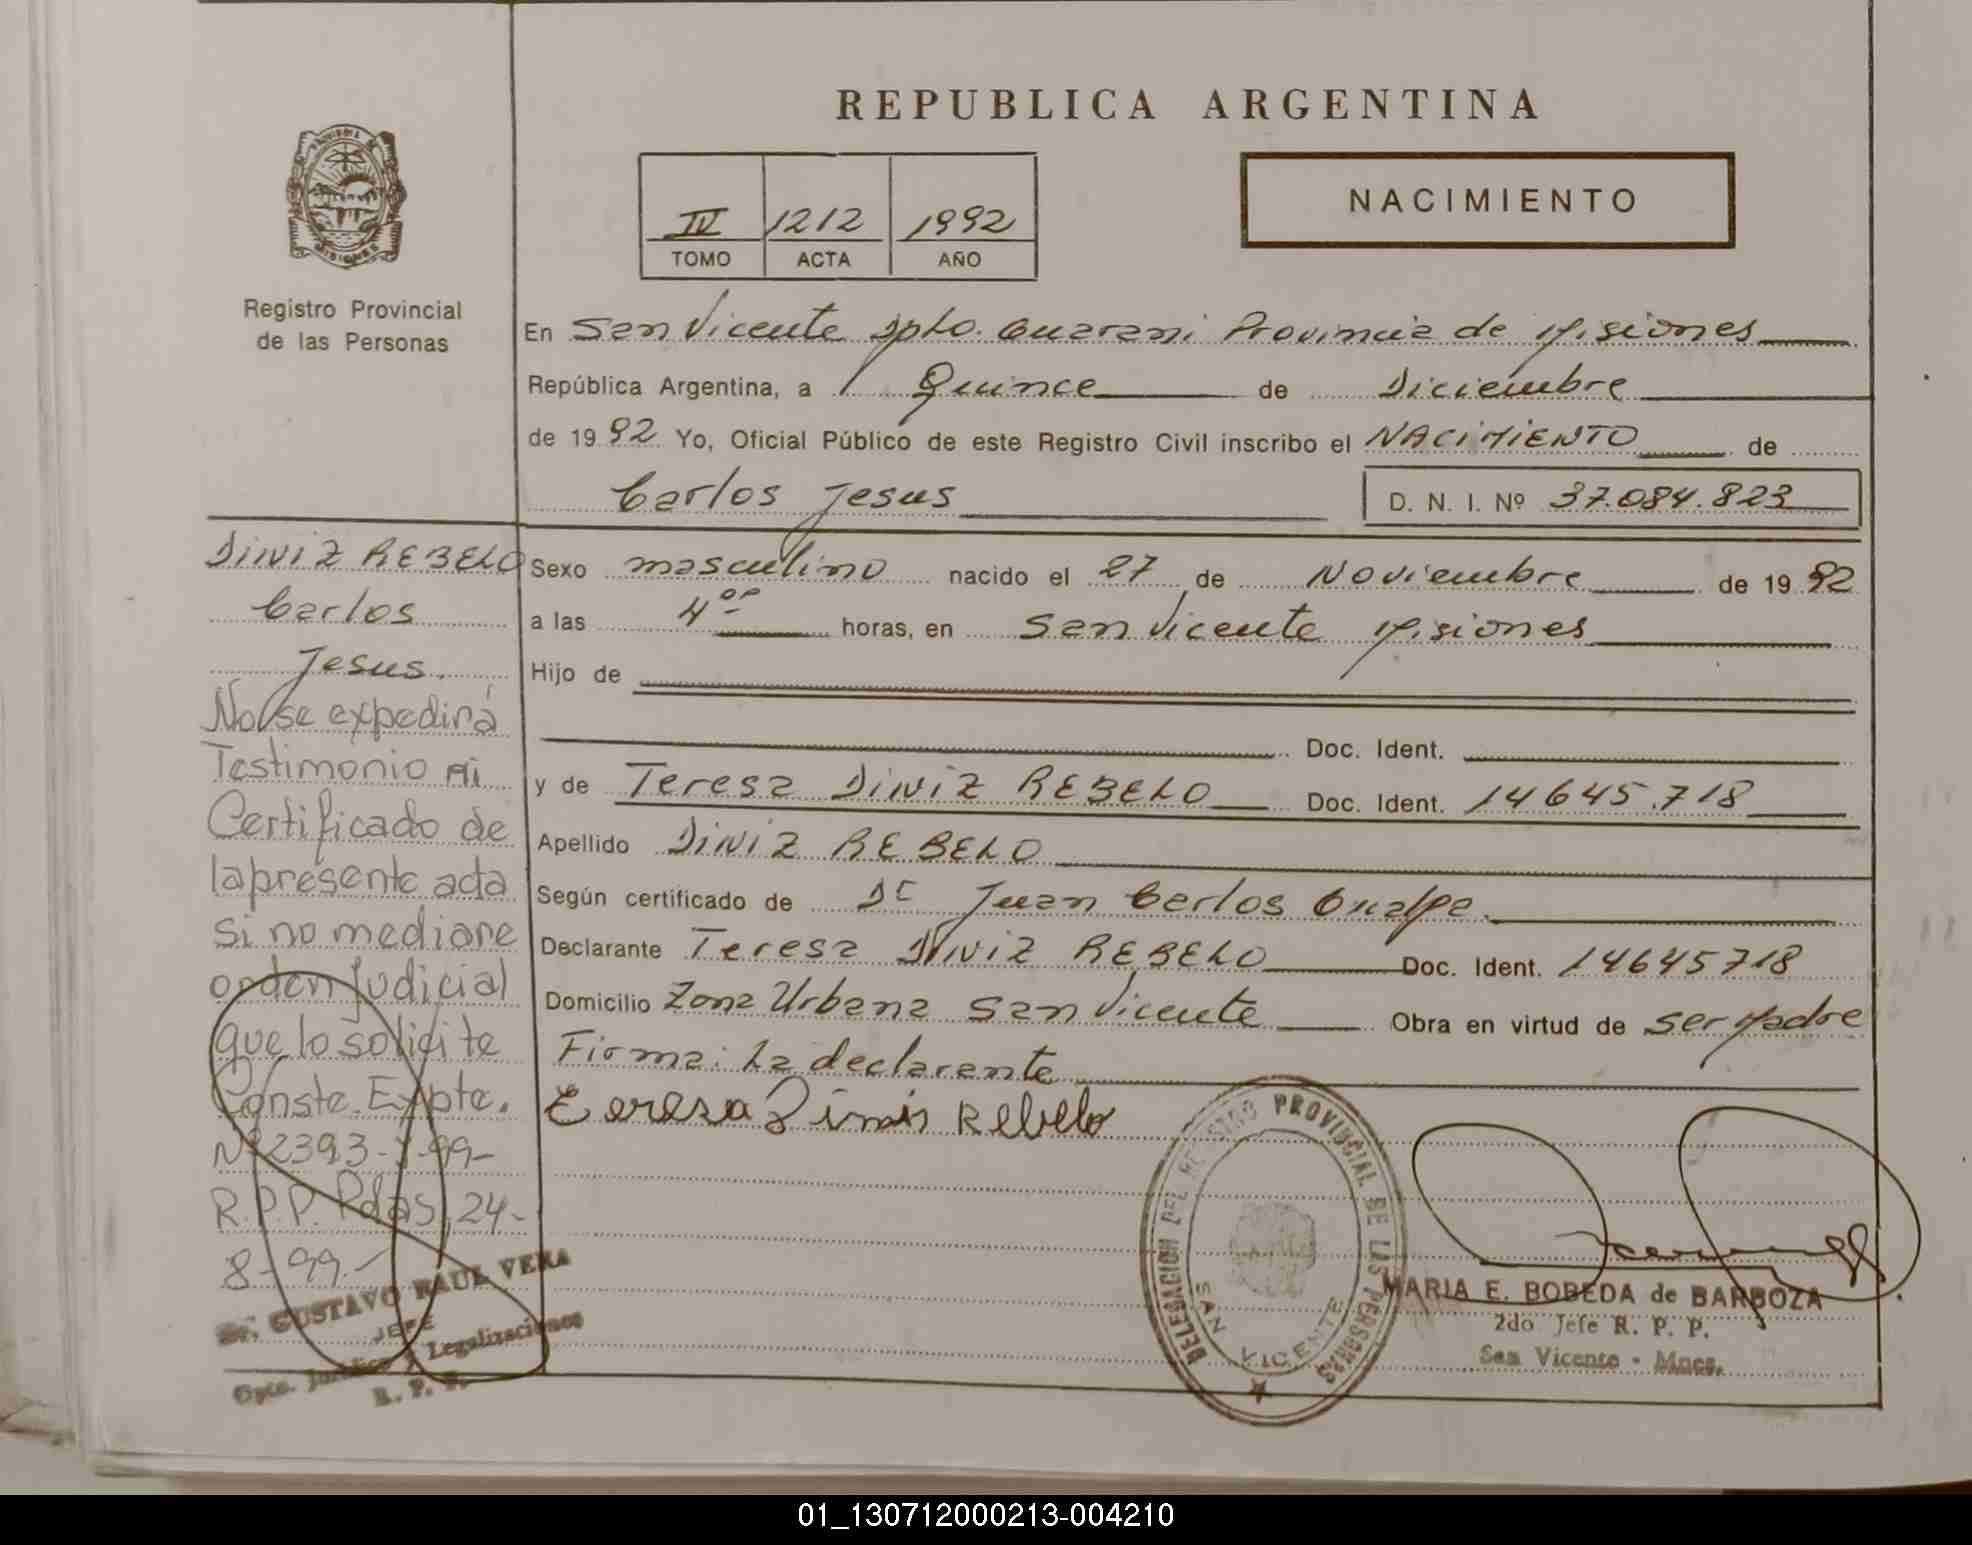 REPUBLICA ARGENTINA
IV 1212 1992
TOMO ACTA AÑO
NACIMIENTO
Registro Provincial
de las Personas
En San Vicente Dpto. Guarani Provincia de Misiones
República Argentina, a Quince de Diciembre
de 1992 Yo, Oficial Público de este Registro Civil inscribo el NACIMIENTO de
Carlos Jesus
D. N. I. Nº 37.084.823
Sexo masculino nacido el 27 de Noviembre de 1992
a las 4 horas, en San Vicente Misiones
Hijo de
Doc. Ident.
y de Teresa DINIZ REBELO Doc. Ident. 14645.718
Apellido DINIZ REBELO
Según certificado de Dr Juan Carlos
Declarante Teresa DINIZ REBELO Doc. Ident. 14645718
Domicilio Zona Urbana San Vicente Obra en virtud de ser Madre
Firma: La declarante
Teresa Rebelo
DINIZ REBELO
Carlos
Jesus.
No se expedirá
Testimonio ni
Certificado de
la presente acta
si no mediare
orden judicial
que lo solicite
Conste. Expte.
Nº 2393-Y-99-
R.P.P. Pdas, 24-
8-99.-
Dr. GUSTAVO RAUL VERA
JEFE
Dpto. Jurídico y Legalizaciones
R. P. P.
DELEGACION DEL REGISTRO PROVINCIAL DE LAS PERSONAS
SAN VICENTE
MARIA E. BOBEDA de BARBOZA
2do Jefe R. P. P.
San Vicente - Mnes.
01_130712000213-004210